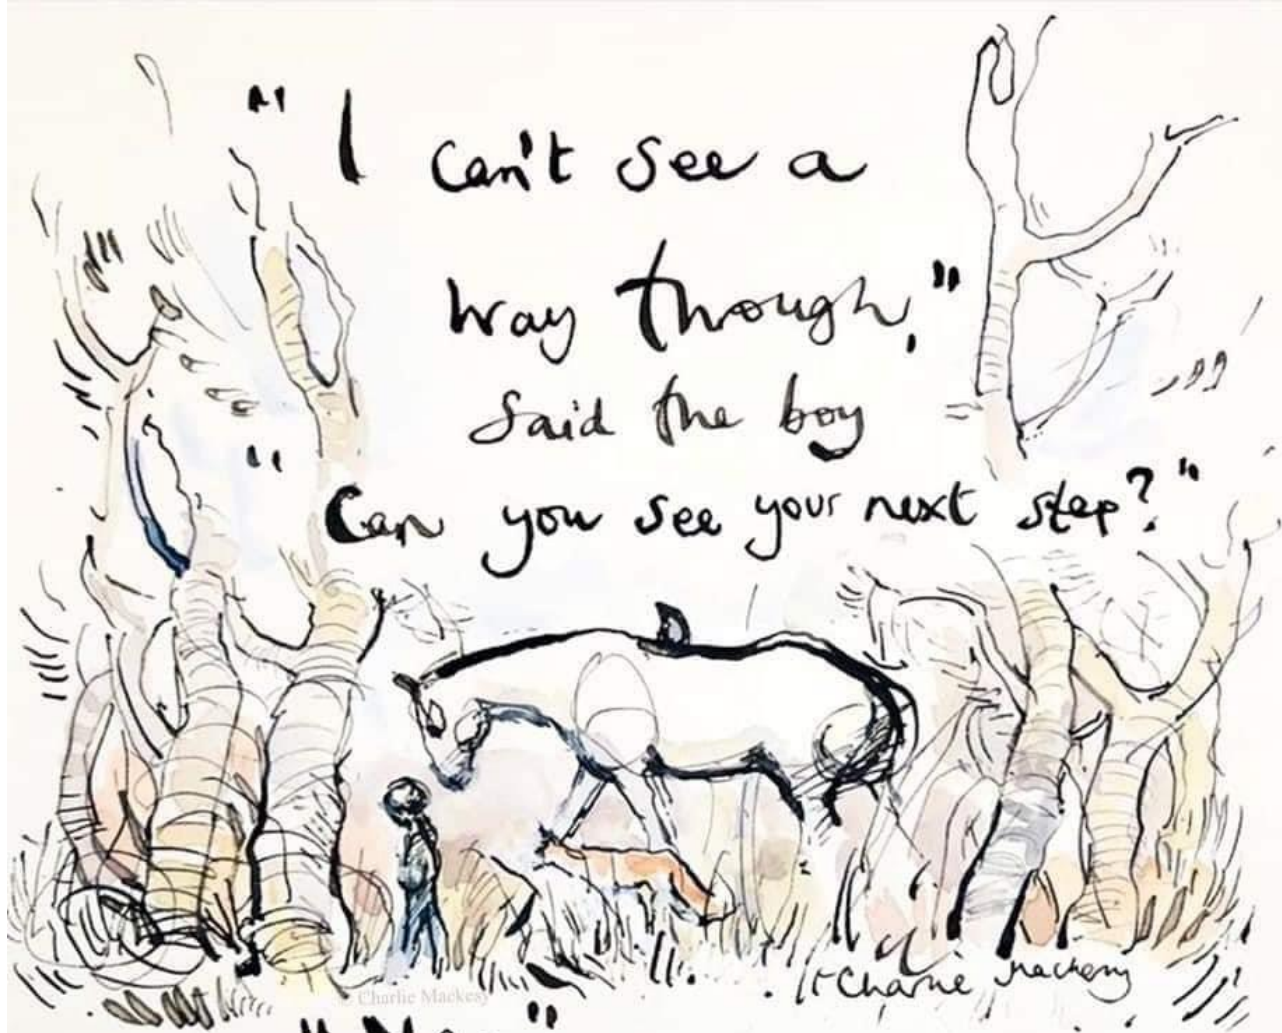 "I can't see a
way through,"
said the boy
"Can you see your next step?"
Charlie Mackesy
© Charlie Mackesy